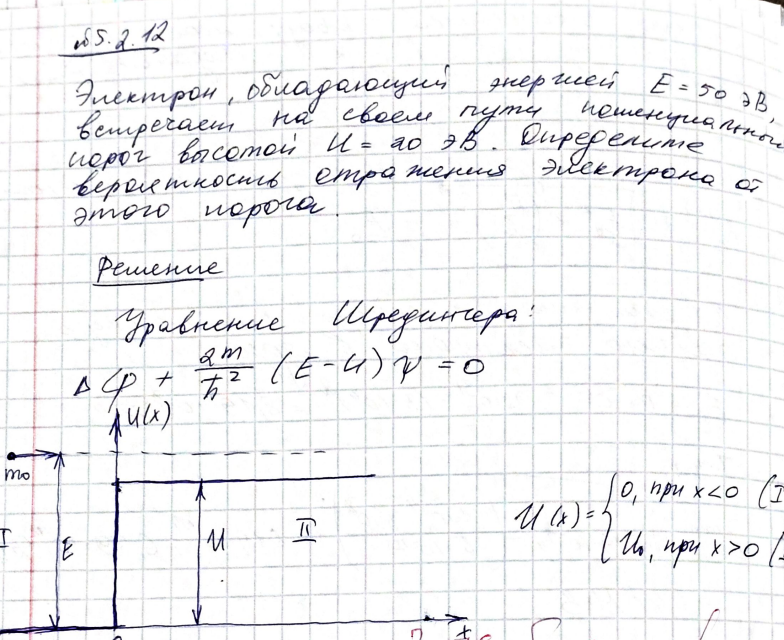 №5.2.12
Электрон, обладающий энергией E = 50 эВ,
встречает на своем пути потенциальный
порог высотой U = 20 эВ. Определите
вероятность отражения электрона от
этого порога.
Решение
Уравнение Шредингера:
Δφ + 2m/ħ² (E - U) ψ = 0
U(x)
m₀
I
E
U
II
U(x) = { 0, при x<0 (I
U₀, при x>0 (
x